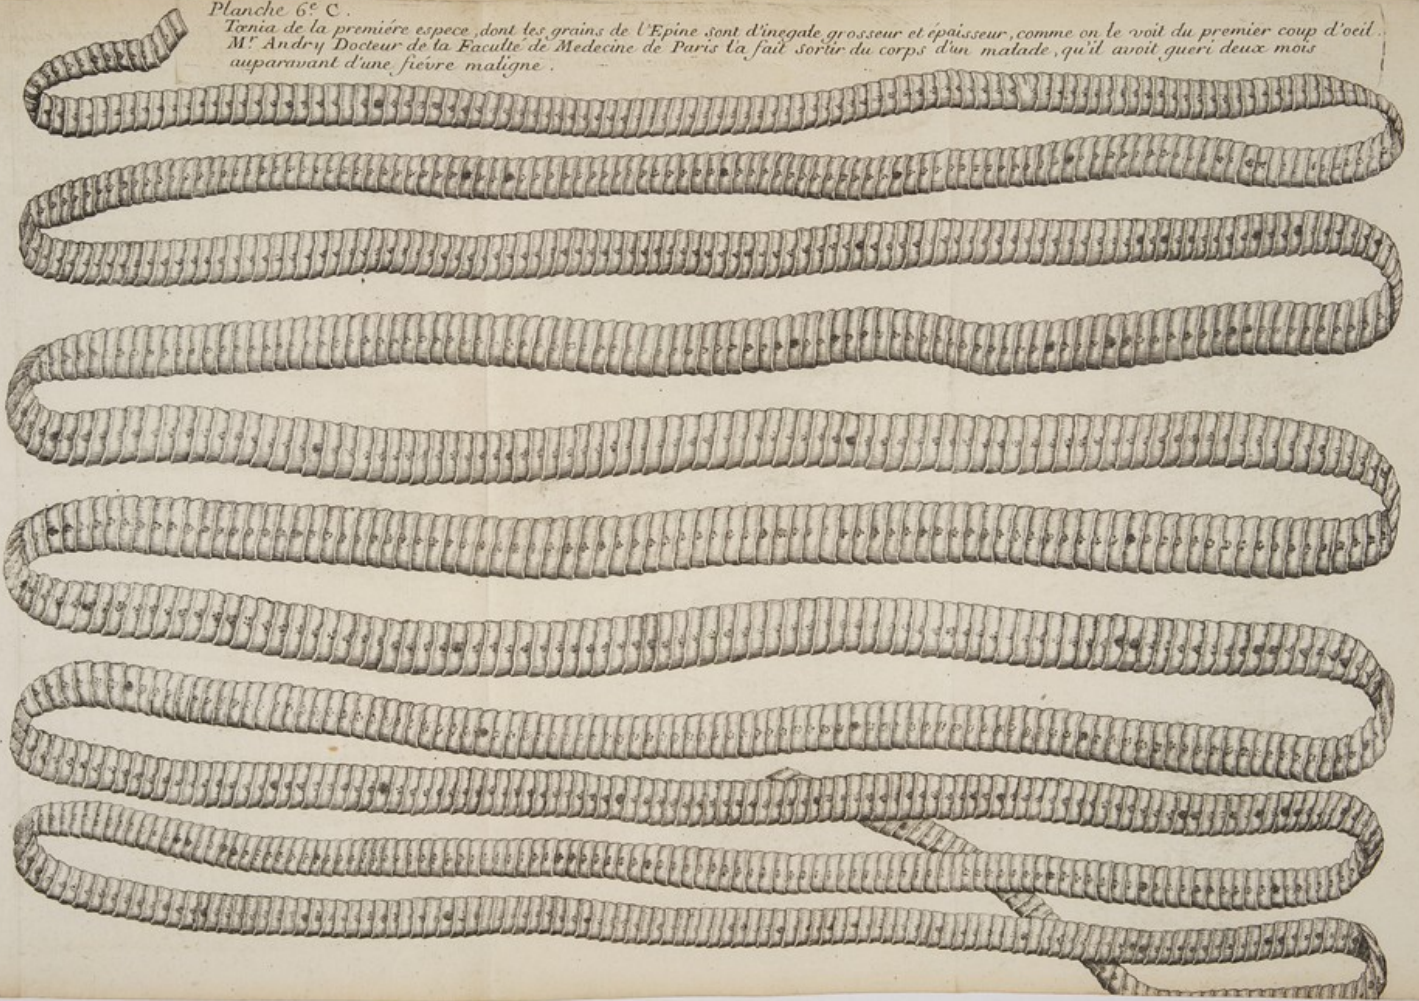 Planche 6.e C.
Tænia de la premiére espece, dont les grains de l'Epine sont d'inegale grosseur et épaisseur, comme on le voit du premier coup d'oeil.
M.r Andry Docteur de la Faculté de Medecine de Paris l'a fait sortir du corps d'un malade, qu'il avoit gueri deux mois
auparavant d'une fiévre maligne.